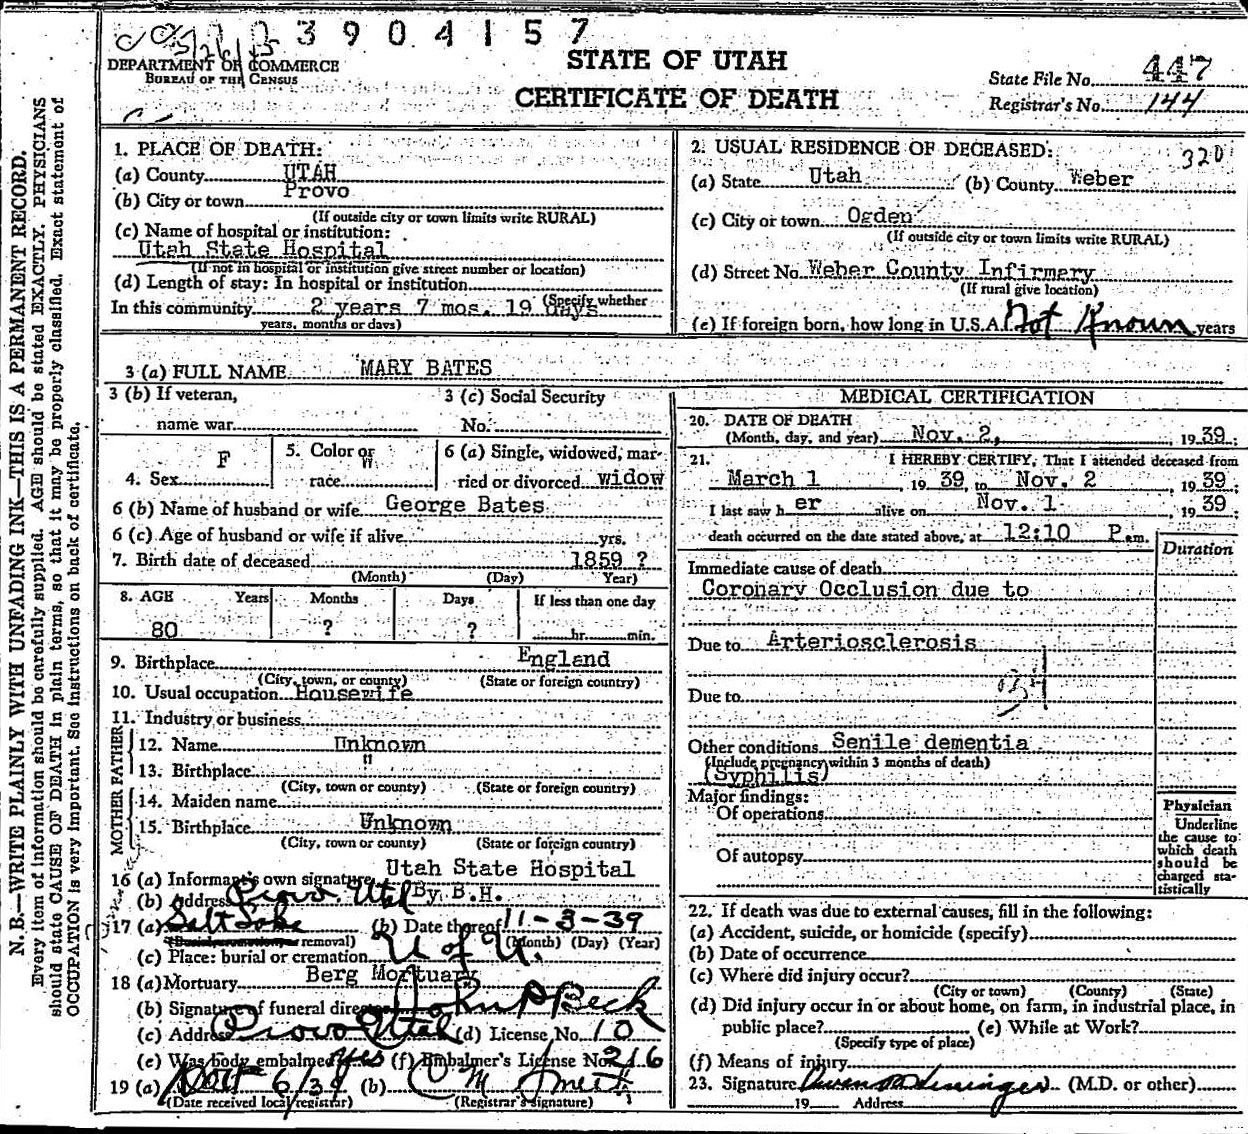 3904157
DEPARTMENT OF COMMERCE
BUREAU OF THE CENSUS
STATE OF UTAH
CERTIFICATE OF DEATH
State File No. 447
Registrar's No. 144
N. B.—WRITE PLAINLY WITH UNFADING INK—THIS IS A PERMANENT RECORD.
Every item of information should be carefully supplied. AGE should be stated EXACTLY. PHYSICIANS
should state CAUSE OF DEATH in plain terms, so that it may be properly classified. Exact statement of
OCCUPATION is very important. See instructions on back of certificate.
1. PLACE OF DEATH:
(a) County UTAH
(b) City or town Provo
(If outside city or town limits write RURAL)
(c) Name of hospital or institution:
Utah State Hospital
(If not in hospital or institution give street number or location)
(d) Length of stay: In hospital or institution
(Specify whether
In this community 2 years 7 mos. 19 days
years, months or days)
2. USUAL RESIDENCE OF DECEASED:
320
(a) State Utah (b) County Weber
(c) City or town Ogden
(If outside city or town limits write RURAL)
(d) Street No. Weber County Infirmary
(If rural give location)
(e) If foreign born, how long in U.S.A.? Not Known years
3 (a) FULL NAME MARY BATES
3 (b) If veteran,
name war
3 (c) Social Security
No.
4. Sex F
5. Color or
race W
6 (a) Single, widowed, mar-
ried or divorced widow
6 (b) Name of husband or wife George Bates
6 (c) Age of husband or wife if alive yrs.
7. Birth date of deceased 1859 ?
(Month) (Day) Year)
8. AGE Years Months Days If less than one day
80 ? ? hr. min.
9. Birthplace England
(City, town, or county) (State or foreign country)
10. Usual occupation Housewife
11. Industry or business
FATHER
12. Name Unknown
13. Birthplace "
(City, town or county) (State or foreign country)
MOTHER
14. Maiden name
15. Birthplace Unknown
(City, town or county) (State or foreign country)
16 (a) Informant's own signature Utah State Hospital
(b) Address Provo, Utah By B.H.
17 (a) Salt Lake (b) Date thereof 11-3-39
removal) (Month) (Day) (Year)
(c) Place: burial or cremation U of U.
18 (a) Mortuary Berg Mortuary
(b) Signature of funeral director John P Beck
(c) Address Provo Utah (d) License No. 10
(e) Was body embalmed Yes (f) Embalmer's License No. 216
19 (a) 6/39 (b)
(Date received local registrar) (Registrar's signature)
MEDICAL CERTIFICATION
20. DATE OF DEATH
(Month, day, and year) Nov. 2, 1939;
21. I HEREBY CERTIFY, That I attended deceased from
March 1, 1939, to Nov. 2, 1939;
I last saw her alive on Nov. 1, 1939;
death occurred on the date stated above, at 12:10 P.m.
Duration
Immediate cause of death
Coronary Occlusion due to
Due to Arteriosclerosis
Due to
Other conditions Senile dementia
(Include pregnancy within 3 months of death)
(Syphilis)
Major findings:
Of operations
Of autopsy
Physician
Underline
the cause to
which death
should be
charged sta-
tistically
22. If death was due to external causes, fill in the following:
(a) Accident, suicide, or homicide (specify)
(b) Date of occurrence
(c) Where did injury occur?
(City or town) (County) (State)
(d) Did injury occur in or about home, on farm, in industrial place, in
public place? (e) While at Work?
(Specify type of place)
(f) Means of injury
23. Signature (M.D. or other)
19 Address